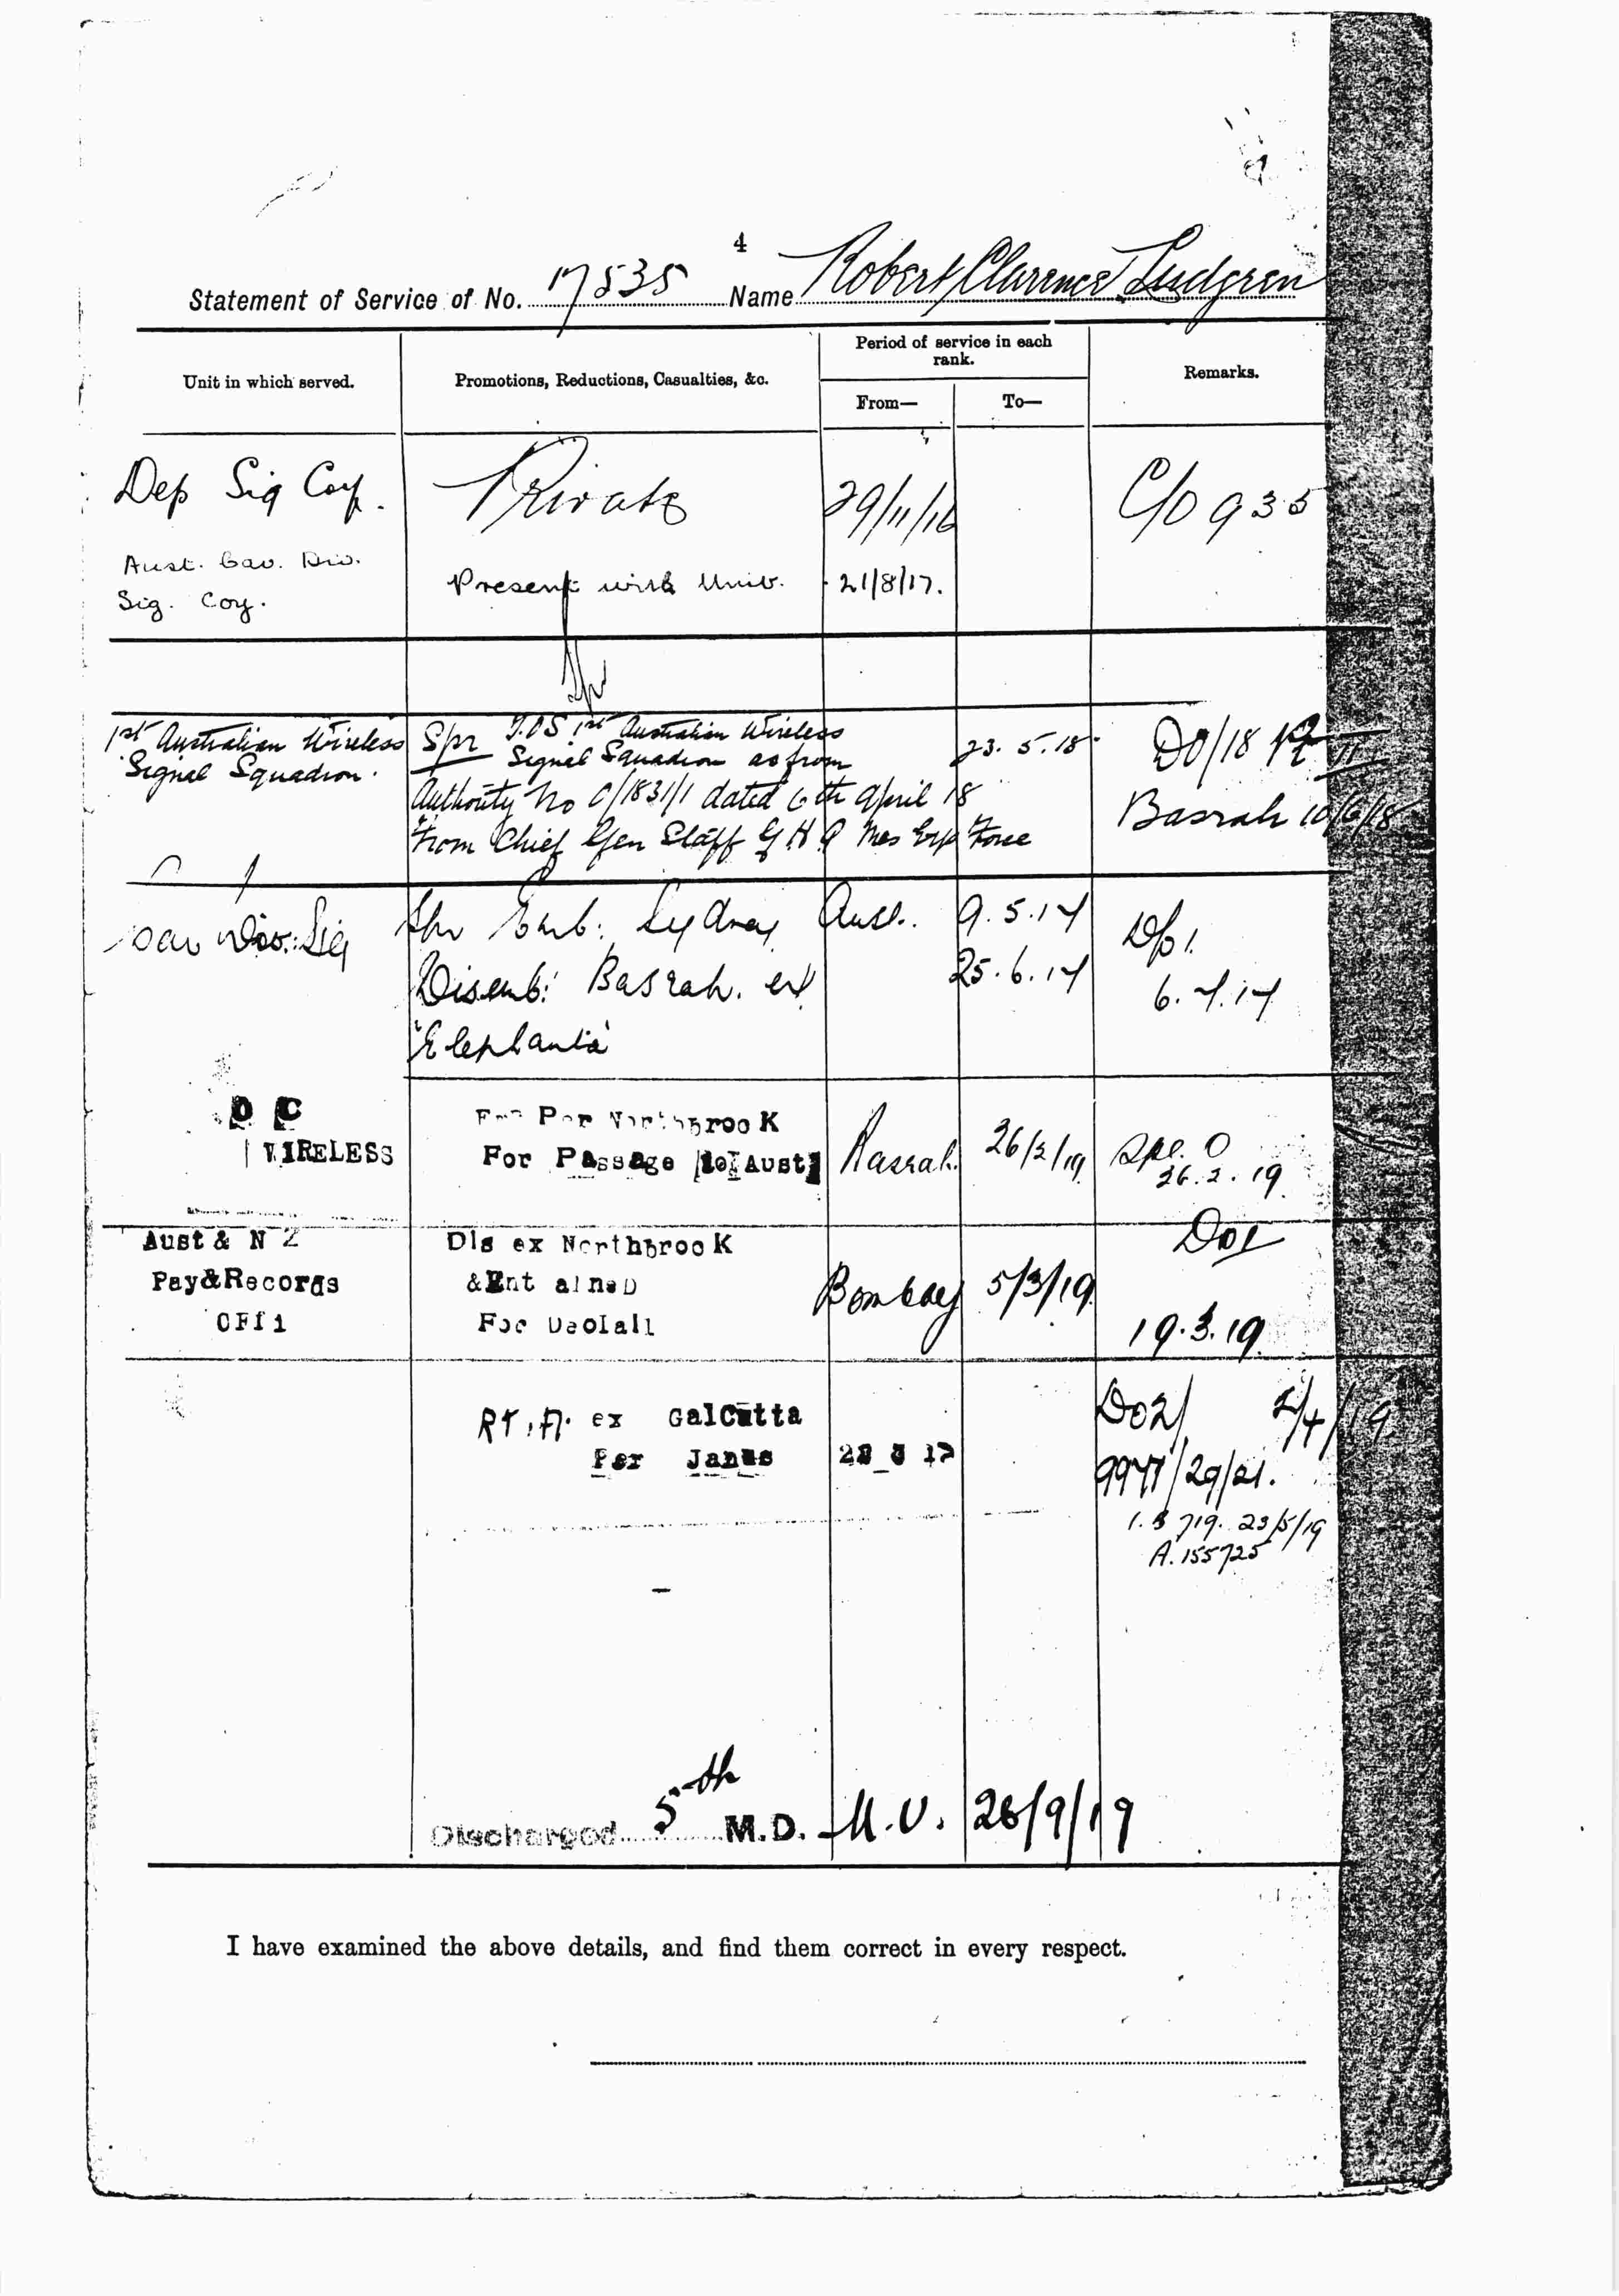 4
Statement of Service of No. 17535 Name Robert Clarence Ludgren
Unit in which served.
Promotions, Reductions, Casualties, &c.
Period of service in each rank.
From—
To—
Remarks.
Dep Sig Coy. Private 29/11/16 C/O 935
Aust. Cav. Div.
Sig. Coy.
Present with Unit. 21/8/17.
Spr
1st Australian Wireless Spr T.O.S 1st Australian Wireless
Signal Squadron. Signal Squadron as from 23. 5. 18. DO/18
Authority No C/1831/1 dated 6th April 18
From Chief Gen Staff G H Q Mes Exp Force Basrah 10/6/18
Cav Div: Sig Spr Emb: Sydney Aust. 9. 5. 17
Disemb: Basrah. ex 25. 6. 17
"Elephanta" 6. 7. 17
O C
WIRELESS
Per NorthbrooK
For Passage to Aust Basrah. 26/2/19 Spl. O
26. 2. 19
Aust & N Z
Pay&Records
OFfi
DIs ex NorthbrooK
&Ent aIneD
For DeoIalI
Bombay 5/3/19. DO1
19. 3. 19.
RT.A. ex CalCutta
Per Janus
DO2/ 2/4/19
9977/29/21.
1. B 719. 23/5/19
A. 155725
Discharged 5th M.D. M.U. 26/9/19
I have examined the above details, and find them correct in every respect.